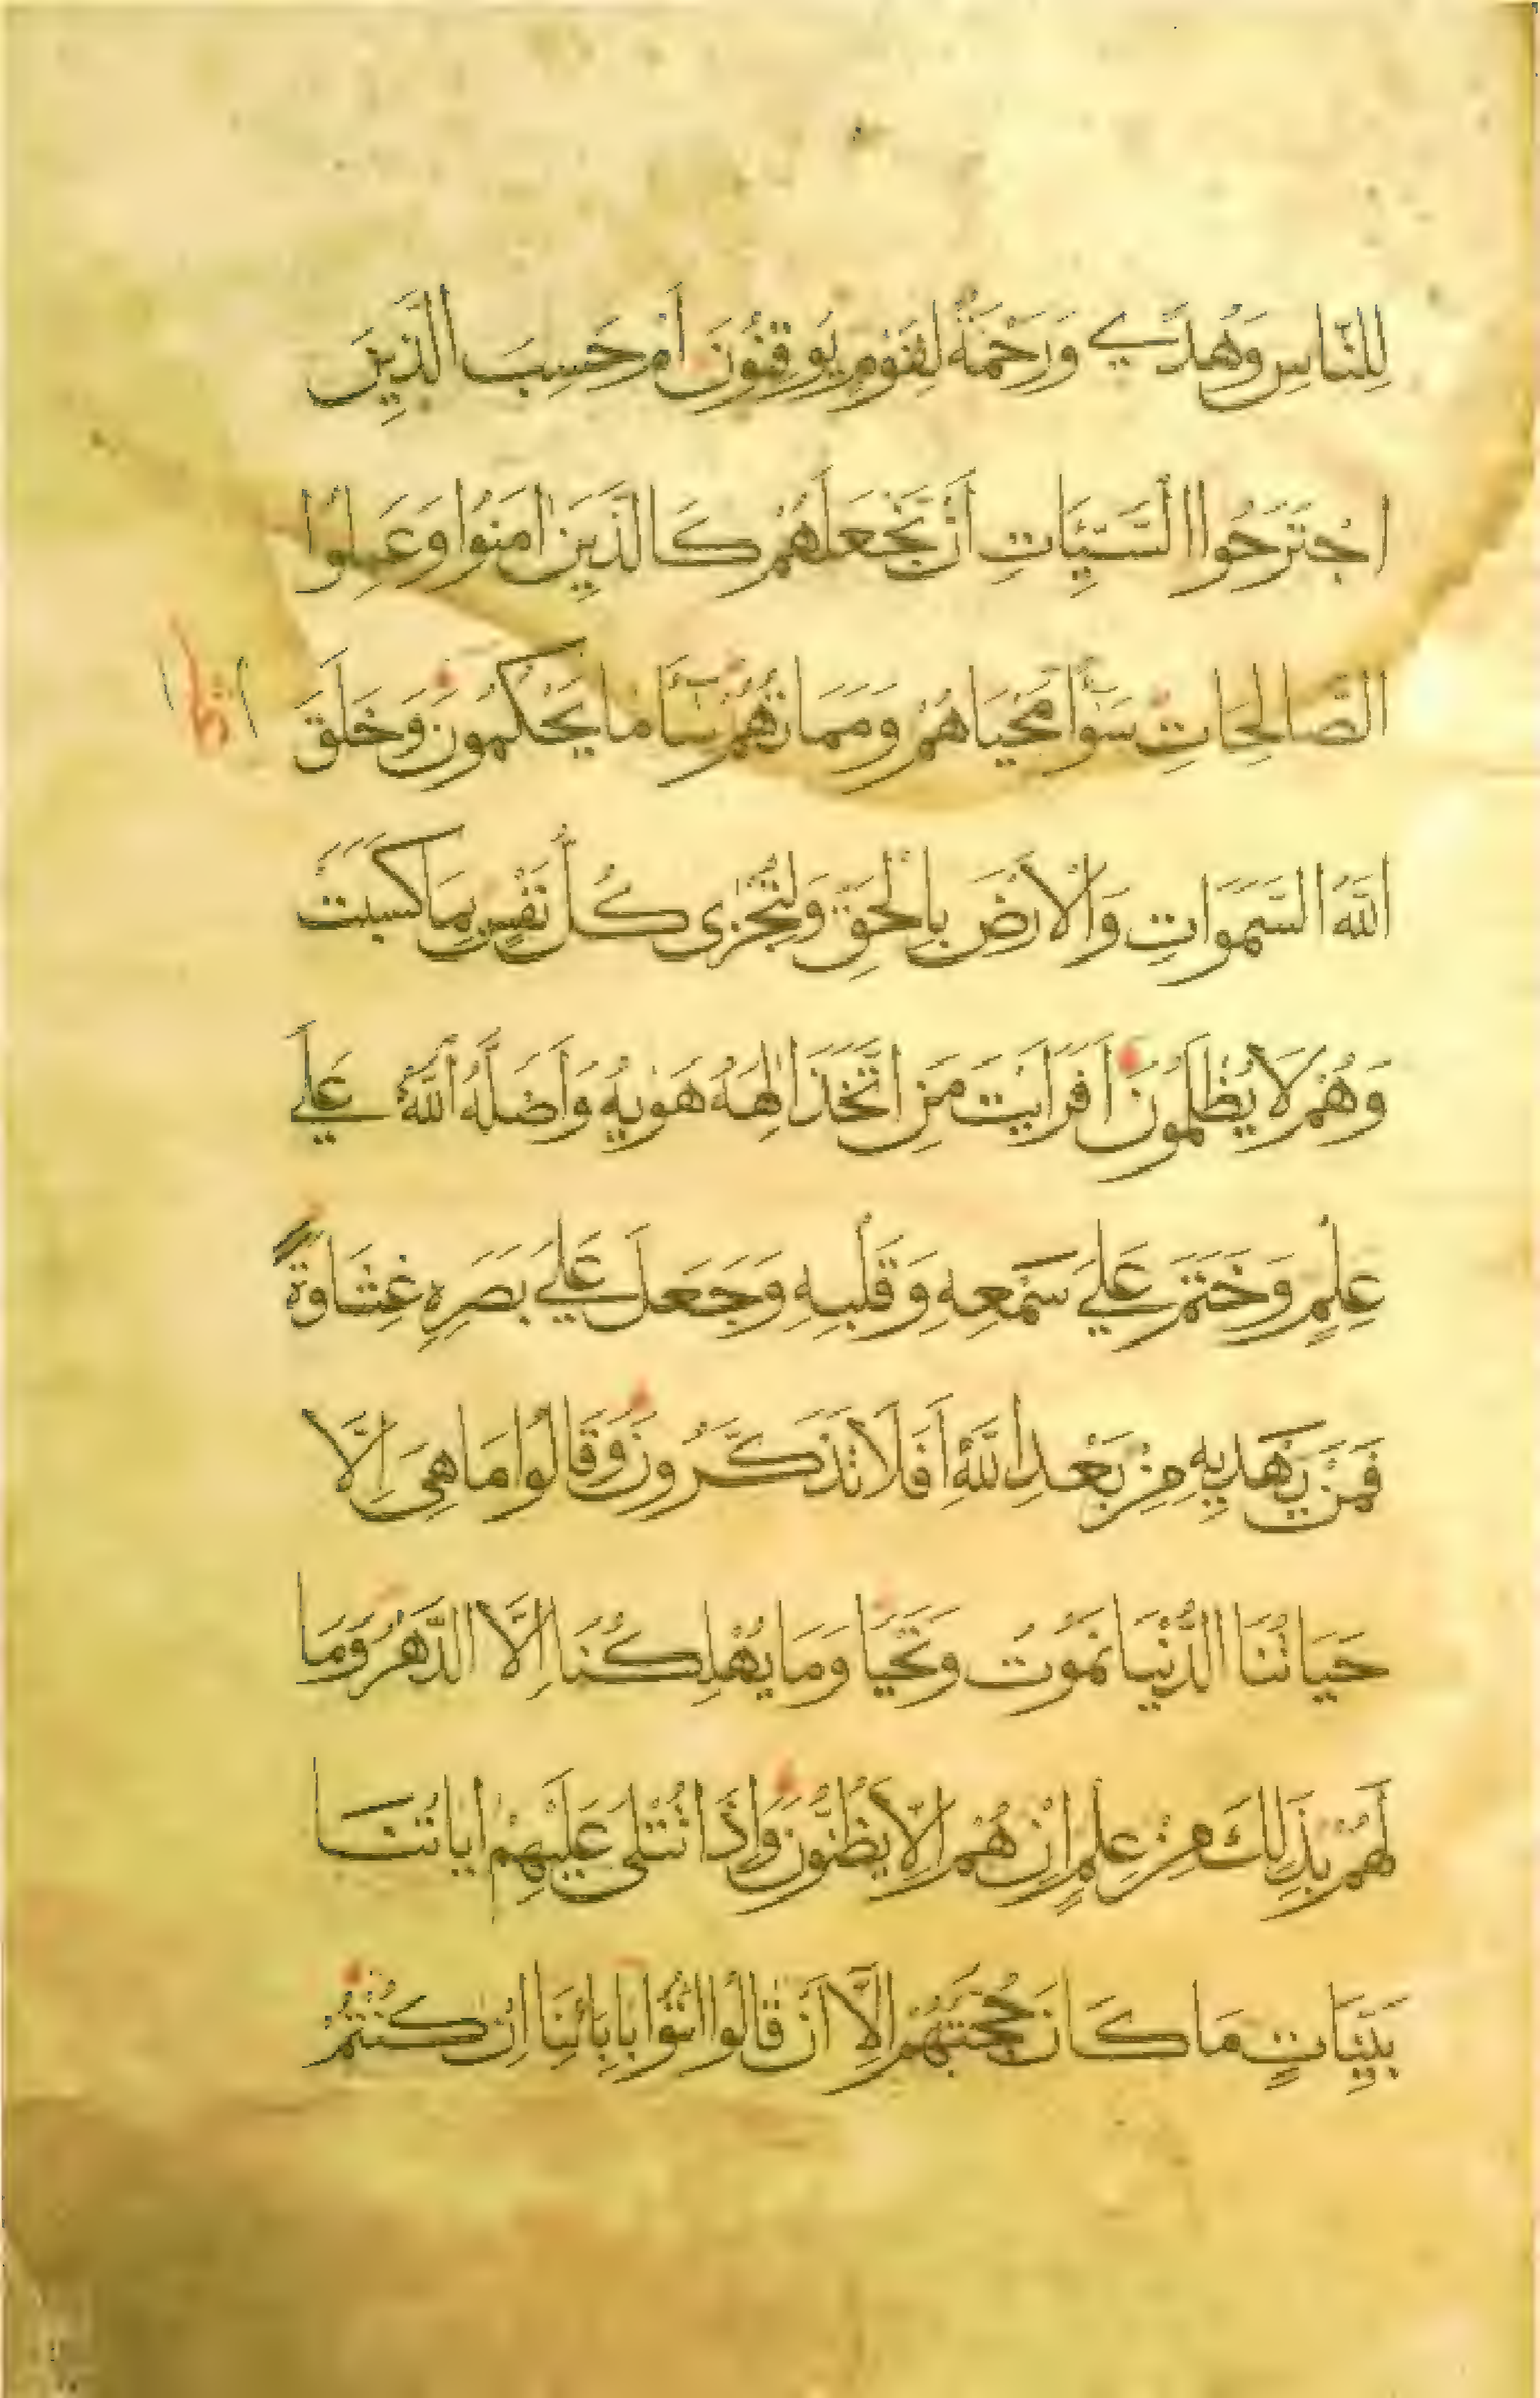 لِلنَّاسِ وَهُدًي وَرَحْمَةٌ لِقَوْمٍ يُوقِنُونَ أَمْ حَسِبَ الَّذِينَ
اجْتَرَحُوا السَّيِّئَاتِ أَنْ نَجْعَلَهُمْ كَالَّذِينَ اٰمَنُوا وَعَمِلُوا
الصَّالِحَاتِ سَوَاءً مَحْيَاهُمْ وَمَمَاتُهُمْ سَاءَ مَا يَحْكُمُونَ وَخَلَقَ
اللّٰهُ السَّمٰوَاتِ وَالْاَرْضَ بِالْحَقِّ وَلِتُجْزٰى كُلُّ نَفْسٍ بِمَا كَسَبَتْ
وَهُمْ لَا يُظْلَمُونَ اَفَرَاَيْتَ مَنِ اتَّخَذَ اِلٰهَهُ هَوٰيهُ وَاَضَلَّهُ اللّٰهُ عَلٰي
عِلْمٍ وَخَتَمَ عَلٰي سَمْعِهِ وَقَلْبِهِ وَجَعَلَ عَلٰي بَصَرِهِ غِشَاوَةً
فَمَنْ يَهْدِيهِ مِنْ بَعْدِ اللّٰهِ اَفَلَا تَذَكَّرُونَ وَقَالُوا مَا هِيَ اِلَّا
حَيَاتُنَا الدُّنْيَا نَمُوتُ وَنَحْيَا وَمَا يُهْلِكُنَا اِلَّا الدَّهْرُ وَمَا
لَهُمْ بِذٰلِكَ مِنْ عِلْمٍ اِنْ هُمْ اِلَّا يَظُنُّونَ وَاِذَا تُتْلٰى عَلَيْهِمْ اٰيَاتُنَا
بَيِّنَاتٍ مَا كَانَ حُجَّتَهُمْ اِلَّا اَنْ قَالُوا ائْتُوا بِاٰبَائِنَا اِنْ كُنْتُمْ